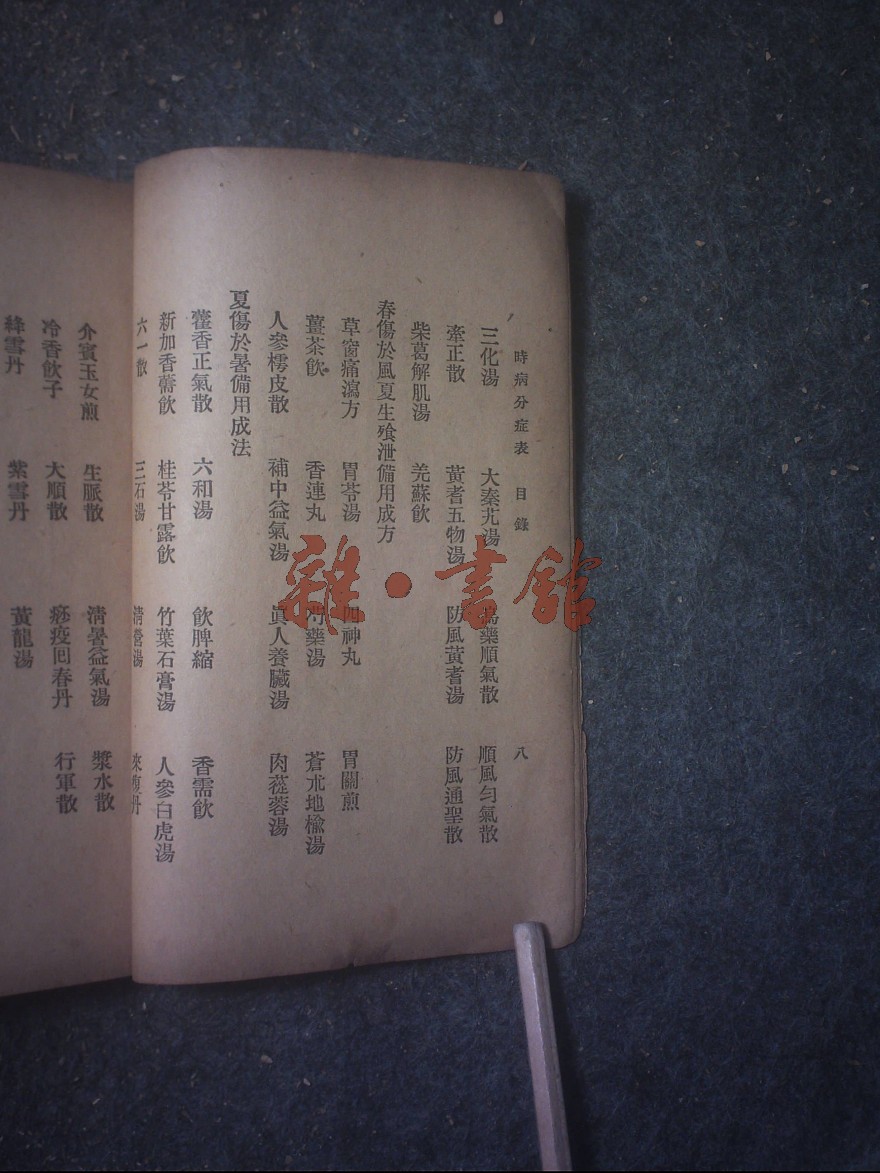 時病分症表 目錄 八
三化湯 大秦艽湯 烏藥順氣散 順風勻氣散
牽正散 黃耆五物湯 防風黃耆湯 防風通聖散
柴葛解肌湯 羌蘇飲
春傷於風夏生飱泄備用成方
草窗痛瀉方 胃苓湯 四神丸 胃關煎
薑茶飲 香連丸 芍藥湯 蒼朮地楡湯
人參樗皮散 補中益氣湯 眞人養臟湯 肉蓯蓉湯
夏傷於暑備用成法
藿香正氣散 六和湯 飲脾縮 香需飲
新加香薷飲 桂苓甘露飲 竹葉石膏湯 人參白虎湯
六一散 三石湯 清營湯 來復丹
介賓玉女煎 生脈散 清暑益氣湯 漿水散
冷香飲子 大順散 痧疫回春丹 行軍散
絳雪丹 紫雪丹 黃龍湯
雜·書館